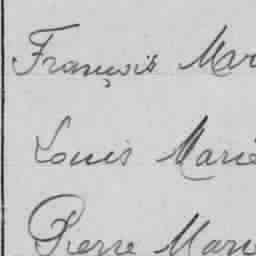 François Mar
Louis Marie
Pierre Marie